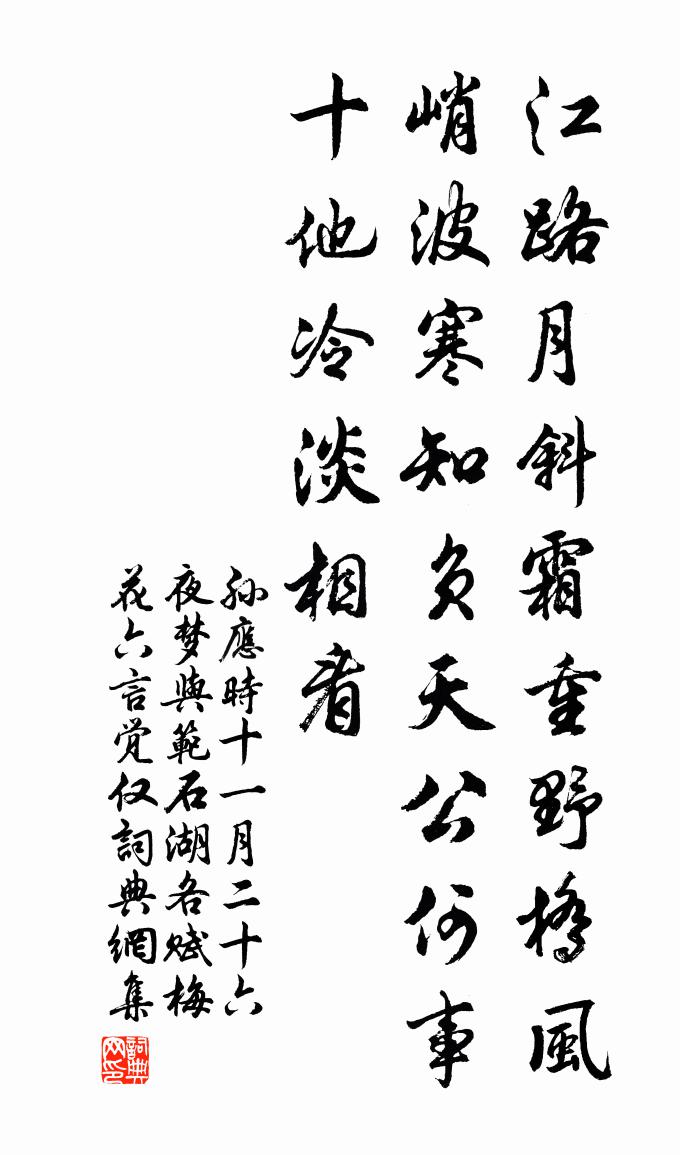 江路月斜霜重野橋風
峭波寒知负天公何事
十他冷淡相看
孫應時十一月二十六
夜梦與範石湖各賦梅
花六言觉仅詞典網集
詞典
网印